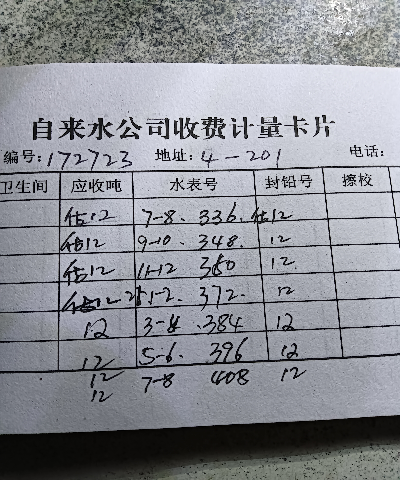 自来水公司收费计量卡片
编号:172723 地址:4-201 电话:
卫生间 应收吨 水表号 封铅号 擦校
估12 7-8. 336. 估12
估12 9-10. 348. 12
估12 11-12 360 12.
估12 1-2. 372. 12
12 3-4. 384 12
12 5-6. 396 12
12 7-8 408 12
12